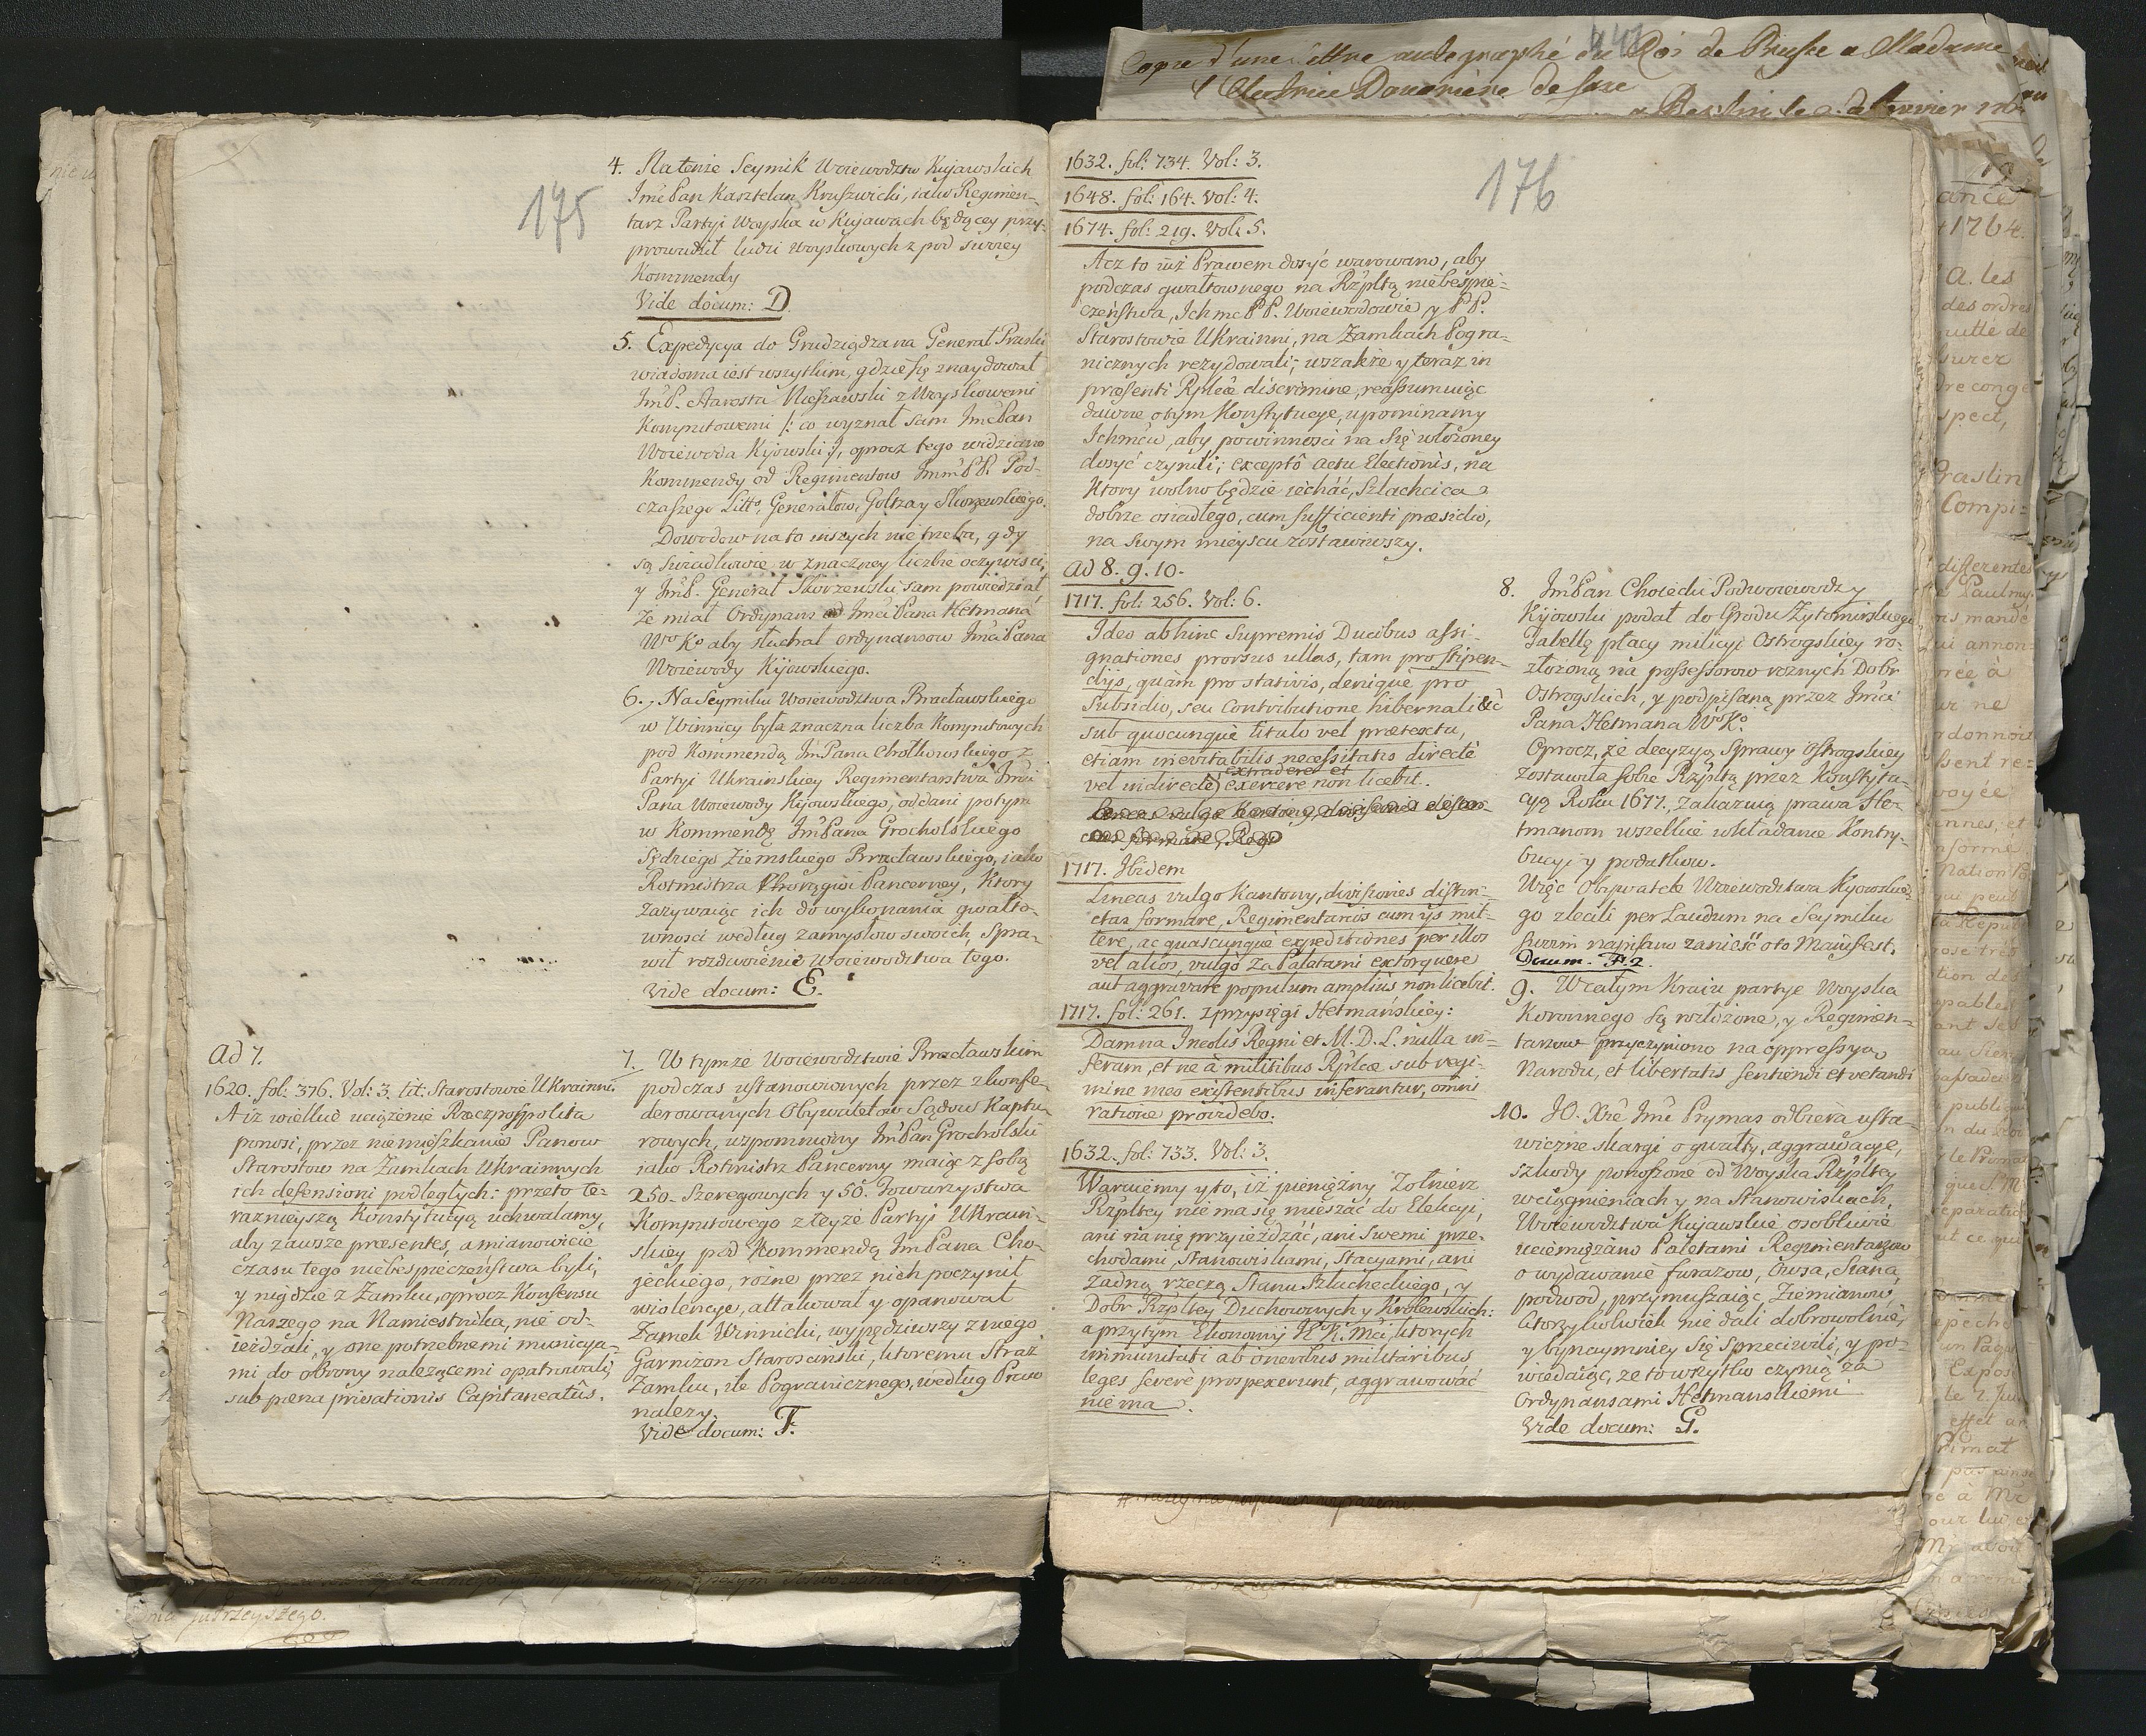 175
4. Na tenże Seymik Woiewodztw Kujawskich
Jmć Pan Kasztelan Kruszwicki, iako Regimen-
tarz Partyi Woyska w Kujawach będącey przy-
prowadził ludzi woyskowych z pod swoiey
Kommendy
Vide docum: D.
5. Expedycya do Grudziądza na Generał Pruski
wiadoma iest wszytkim, gdzie się znaydował
JmP. Starosta Nieszawski z Woyskowemi
Komputowemi /: co wyznał sam Jmć Pan
Woiewoda Kijowski :/, oprocz tego widziano
Kommendy od Regimentow JmmPP. Pod-
czaszego Litto, Generałow Goltza y Skorzewskiego.
Dowodow na to inszych nie trzeba, gdy
są Swiadkowie w znaczney liczbie oczywisci,
y JmP. Generał Skorzewski sam powiedział
że miał Ordynans od Jmći Pana Hetmana
Wo Ko aby słuchał ordynansow Jmći Pana
Woiewody Kijowskiego.
6. Na Seymiku Woiewodztwa Bracławskiego
w Winnicy była znaczna liczba Komputowych
pod Kommendą Jm Pana Chołkowskiego z
Partyi Ukrainskiey Regimentarstwa Jmći
Pana Woiewody Kijowskiego, oddani potym
w Kommendę Jm Pana Grocholskiego
Sędziego Ziemskiego Bracławskiego, iako
Rotmistrza Chorągwi Pancerney, Ktory
zażywaiąc ich do wykonania gwałto-
wności według zamysłow swoich, spra-
wił rozdwoienie Woiewodztwa tego.
Vide docum: E.
Ad 7.
1620. fol: 376. Vol: 3. tit: Starostowie Ukrainni.
A iż wielkie uciążenie Rzeczpospolita
ponosi, przez niemięszkanie Panow
Starostow na Zamkach Ukrainnych
ich defensioni podległych: przeto te-
raznieyszą Konstytucyą uchwalamy,
aby zawsze præsentes, a mianowicie
czasu tego niebespieczeństwa byli,
y nigdzie z Zamku, oprocz Konsensu
Naszego na Namiestnika, nie od-
ieżdżali, y one potrzebnemi municya-
mi do obrony należącemi opatrowali,
sub pœna privationis Capitaneatûs.
7. W tymże Woiewodztwie Bracławskim
podczas ustanowionych przez zkonfe-
derowanych Obywatelow Sądow Kaptu-
rowych, wzpomniony Jm Pan Grocholski
iako Rotmistrz Pancerny maiąc z sobą
250. Szeregowych y 50. Towarzystwa
Komputowego z teyże Partyi Ukrain-
skiey pod Kommendą Jm Pana Cho-
jeckiego, rożne przez nich poczynił
wiolencye, attakował y opanował
Zamek Winnicki, wypędziwszy z niego
Garnizon Starościński, ktoremu Straż
Zamku, ile Pogranicznego, według Prawa
należy.
Vide docum: F.
176
1632. fol: 734. Vol: 3.
1648. fol: 164. Vol: 4.
1674. fol: 219. Vol: 5.
Acz to iuż Prawem dosyć warowano, aby
podczas gwałtownego na Rzpltą niebespie-
czeństwa, Ichmć PP. Woiewodowie y PP.
Starostowie Ukrainni, na Zamkach Pogra-
nicznych rezydowali; wszakże y teraz in
præsenti Rplcæ discrimine, reassumuiąc
dawne o tym Konstytucye, upominamy
Ichmćw, aby powinności na się włożoney
dosyć czynili; exceptô actu Electionis, na
Ktory wolno będzie iechać, Szlachcica
dobrze osiadłego, cum sufficienti præsidio,
na swym mieyscu zostawiwszy.
ad 8. 9. 10.
1717. fol: 256. Vol: 6.
Ideo abhinc Supremis Ducibus assi-
gnationes prorsus ullas, tam pro stipen-
dijs, quàm pro stativis, denique pro
Subsidio, seu Contributione hibernali &c
sub quocunque titulo vel prætextu,
etiam inevitabilis necessitatis directè
vel indirectè, extradere et exercere non licebit.
1717. Ibidem
Lineas vulgo Kantony, divisiones distin-
ctas formare, Regimentarios cum ijs mit-
tere, ac quascunque expeditiones per illos
vel alios, vulgò za Paletami extorquere
aut aggravare populum amplius non licebit.
1717. fol: 261. z przysięgi Hetmańskiey:
Damna Incolis Regni et M. D. L. nulla in-
feram, et ne à militibus Rplcæ sub regi-
mine meo existentibus inferantur, omni
ratione providebo.
1632. fol: 733. Vol: 3.
Waruiemy y to, iż pieniężny Zołnierz
Rzpltey nie ma się mieszać do Elekcyi,
ani na nię przyieżdżać, ani swemi prze-
chodami, stanowiskami, Stacyami, ani
żadną rzeczą, Stanu Szlacheckiego, y
Dobr Rzpltey Duchownych y Krolewskich:
a przytym Ekonomij K. K. Mći, ktorych
immunitati ab oneribus militaribus
leges severè prospexerunt, aggrawować
nie ma.
8. Jm Pan Choiecki Podwoiewodzy
Kijowski podał do Grodu Zytomirskiego
Tabellę płacy milicyi Ostrogskiey ro-
złożoną na possessorow rożnych Dobr
Ostrogskich, y podpisaną przez Jmći
Pana Hetmana Wo Ko.
Oprocz, że decyzyą sprawy Ostrogskiey
zostawiła sobie Rzplta przez Konstytu-
cyą Roku 1677. zakazuią prawa He-
tmanom wszelkie wkładanie Kontry-
bucyi y podatkow.
Więc Obywatele Woiewodztwa Kijowskie-
go zlecili per Laudum na Seymiku
swoim napisaw zanieść oto Manifest.
Docum. F. 2.
9. W całym Kraiu partye Woyska
Koronnego są rozłożone, y Regimen-
tarzow przyczyniono na oppressyą
Narodu, et libertatis sentiendi et vetandi
10. JO. Xże Jmć Prymas odbiera usta-
wiczne skargi o gwałty, aggrawacye,
szkody ponoszone od Woyska Rzpltey
w ciągnieniach y na Stanowiskach,
Woiewodztwa Kujawskie osobliwie
uciemiężano Paletami Regimentarzow
o wydawanie furażow, Owsa, Siana,
podwod, przymuszaiąc Ziemianow,
ktorzykolwiek nie dali dobrowolnie,
y bynaymniey się sprzeciwili, y po-
wiedaiąc, że to wszytko czynią za
Ordynansami Hetmanskiemi
Vide docum: G.
Copie d'une lettre autographé du Roi de Prusse a Madame
l'Electrice Douariere de Saxe